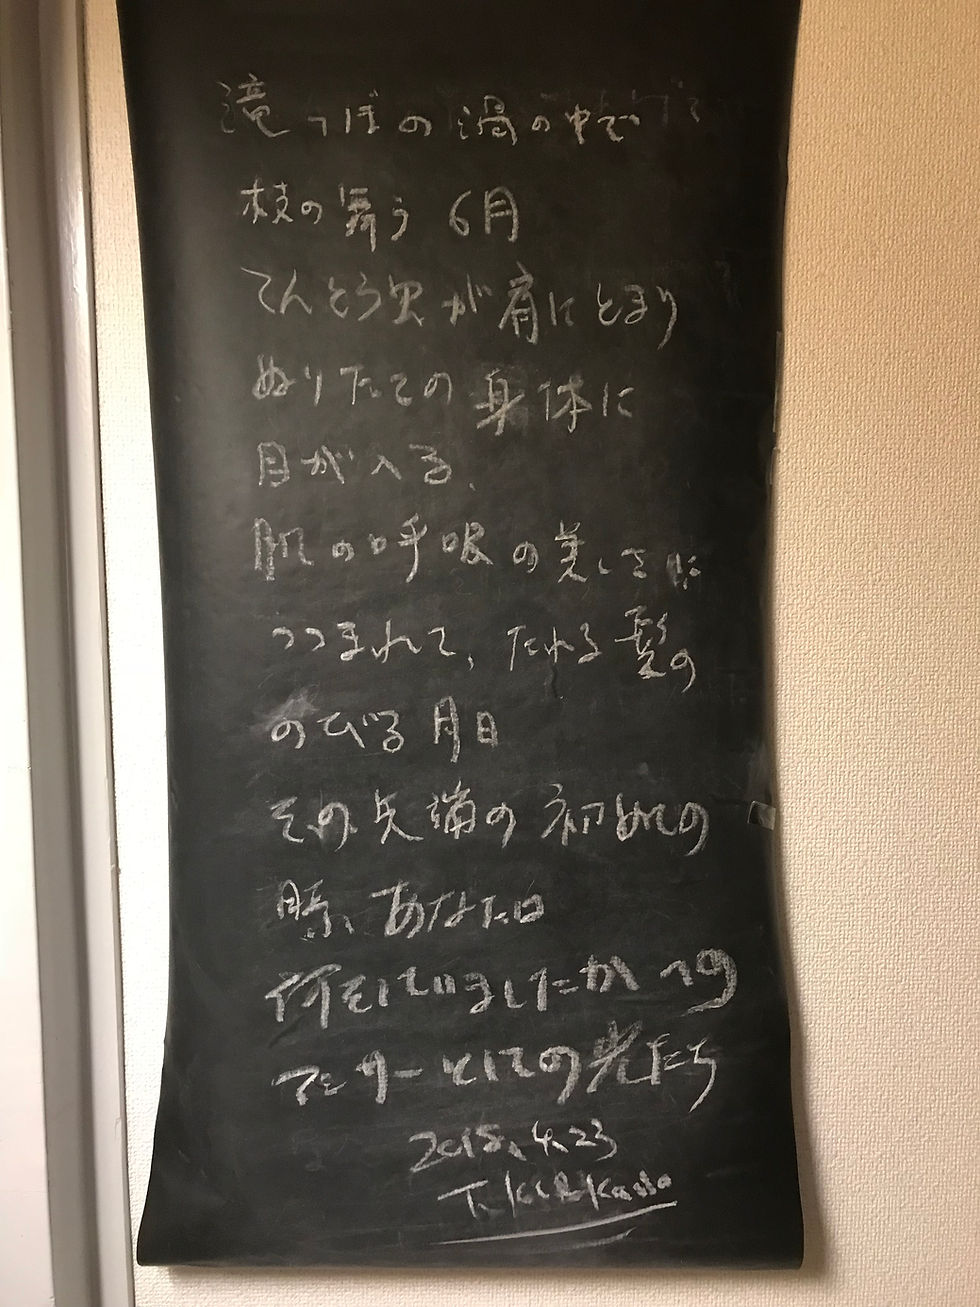 滝つぼの渦の中で
枝の舞う 6月
てんとう虫が肩にとまり
ぬりたての身体に
目が入る、
肌の呼吸の美しさに
つつまれて、たれる髪の
のびる月日
その先端の初めての
時、あなたは
何をしていましたかへの
アンサーとしての光たち
2018.4.23